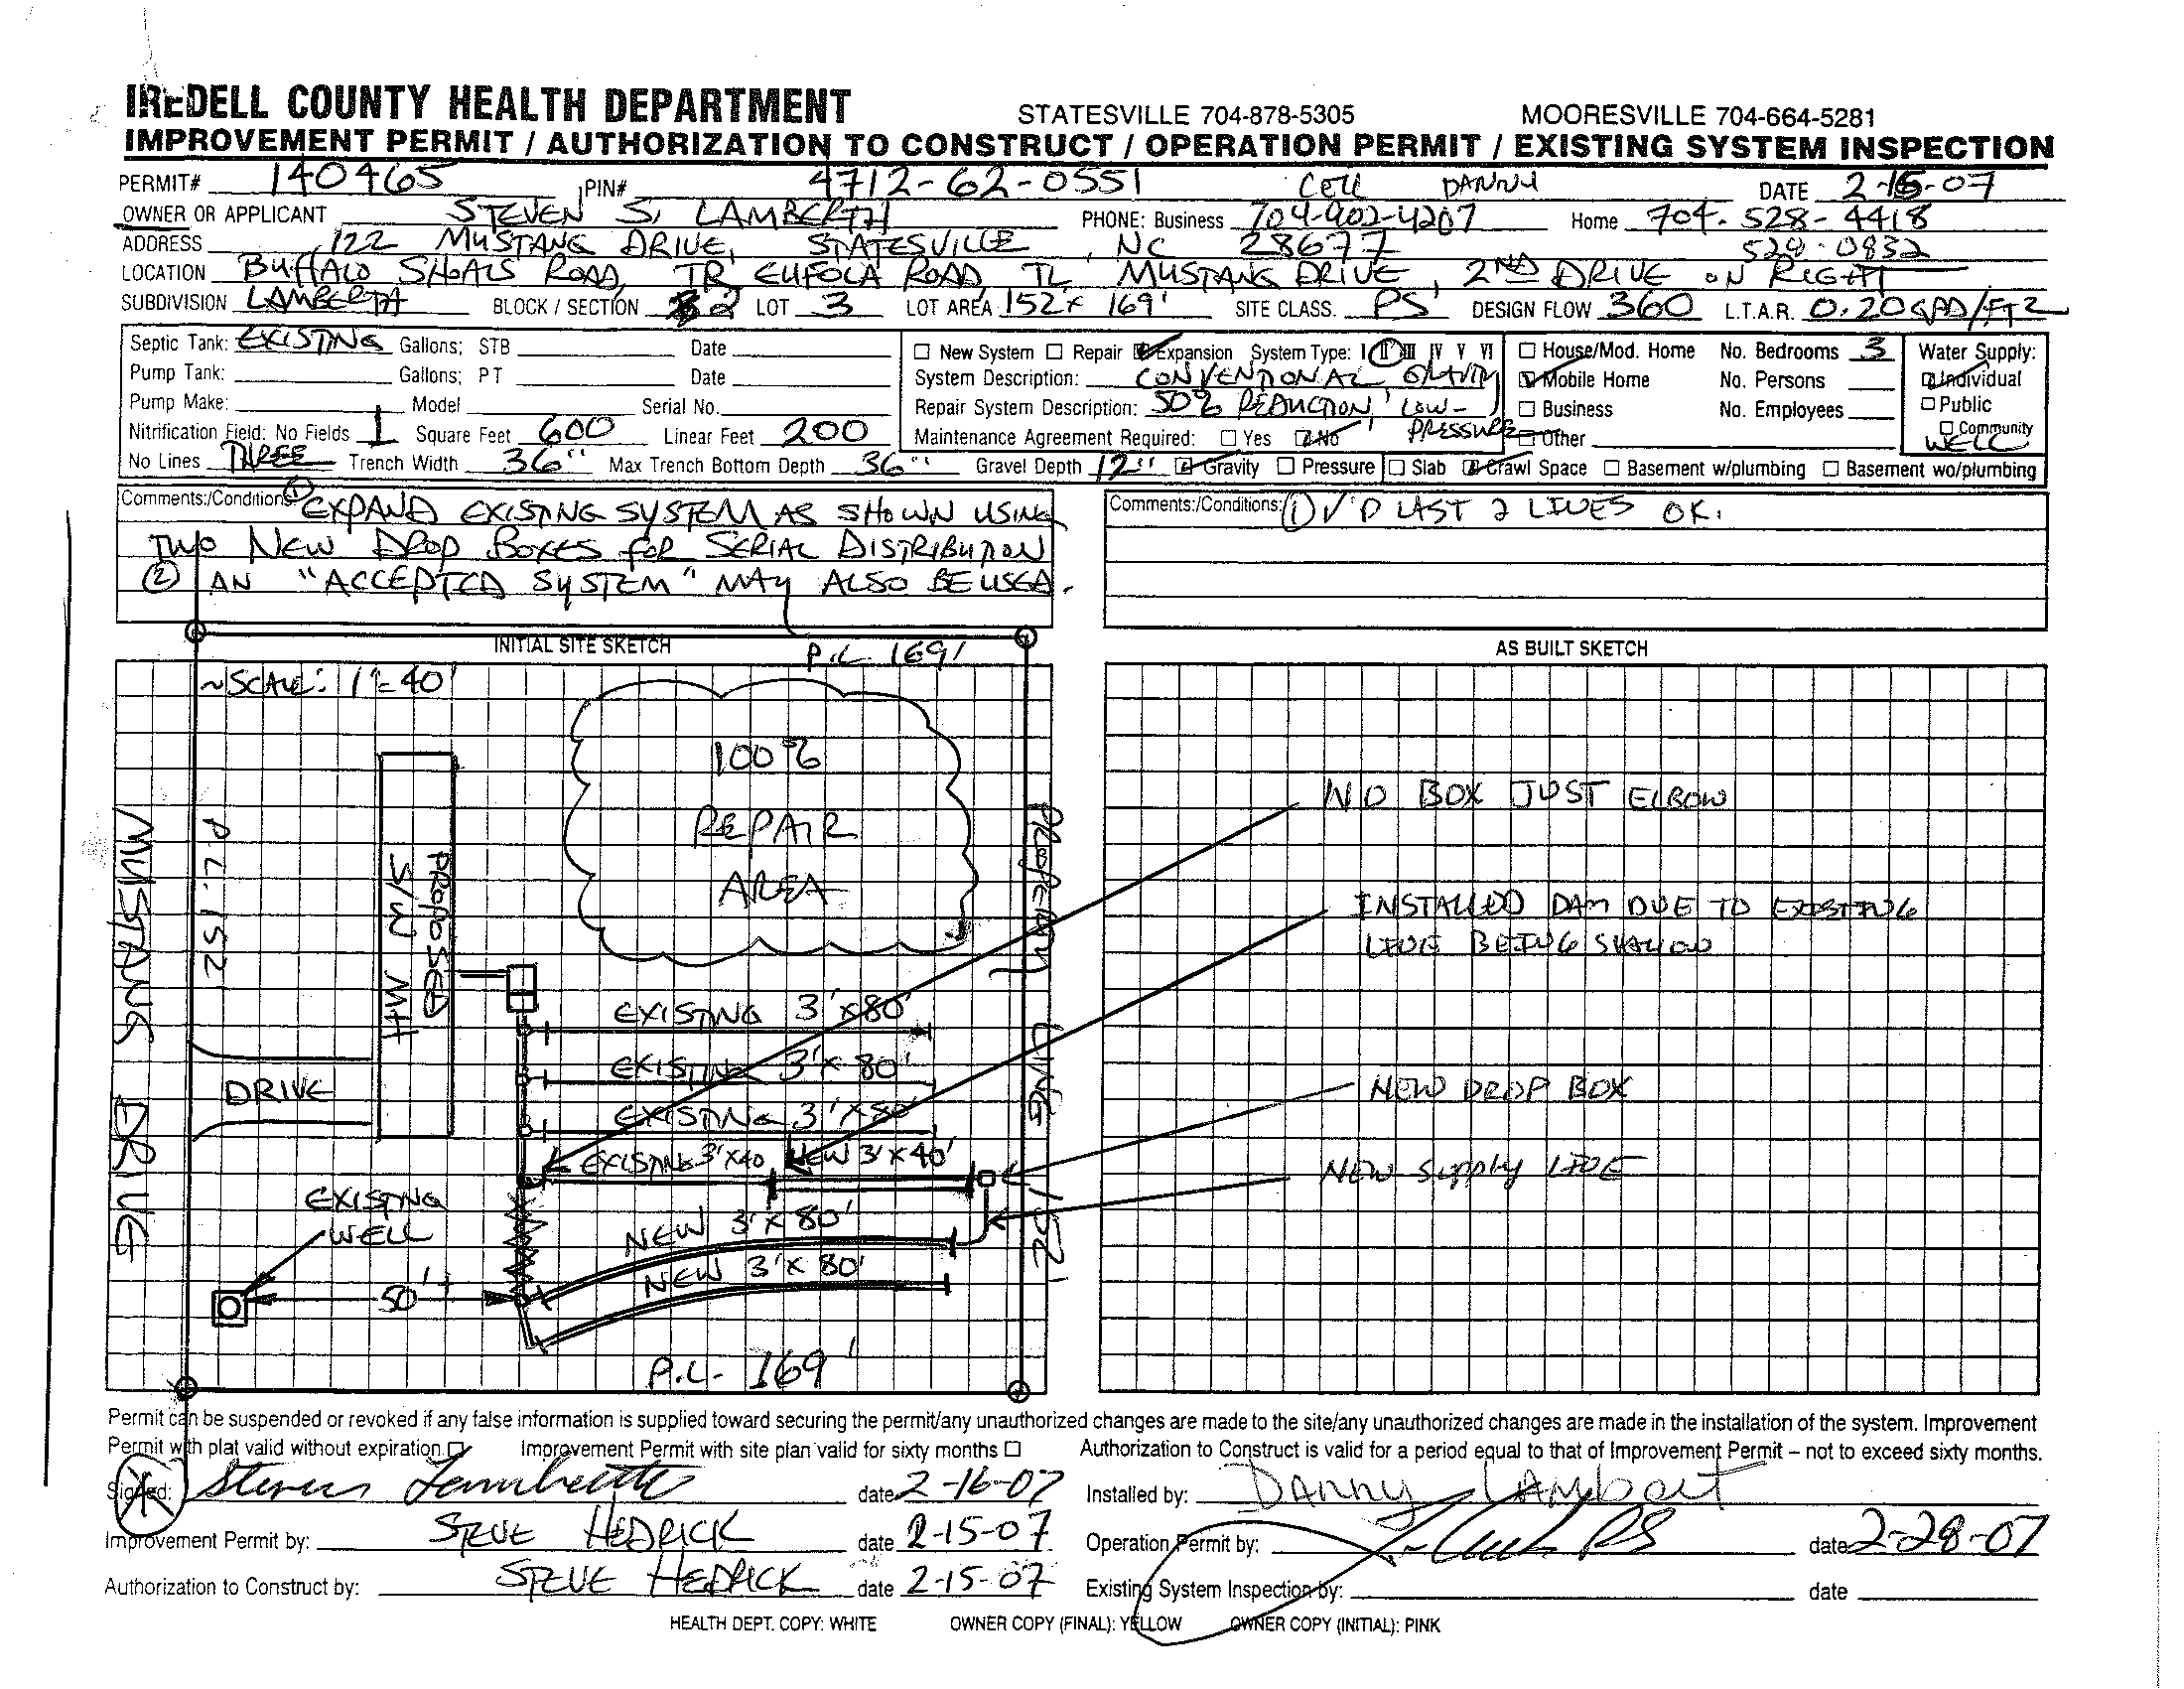 IREDELL COUNTY HEALTH DEPARTMENT STATESVILLE 704-878-5305 MOORESVILLE 704-664-5281
IMPROVEMENT PERMIT / AUTHORIZATION TO CONSTRUCT / OPERATION PERMIT / EXISTING SYSTEM INSPECTION
PERMIT# 140465 PIN# 4712-62-0551 CELL DANNY DATE 2-15-07
OWNER OR APPLICANT STEVEN S. LAMBERTH PHONE: Business 704-902-4207 Home 704-528-4418
ADDRESS 122 MUSTANG DRIVE, STATESVILLE, NC 28677 528-0832
LOCATION BUFFALO SHOALS ROAD, TR EUFOLA ROAD, TL MUSTANG DRIVE, 2ND DRIVE ON RIGHT
SUBDIVISION LAMBERTH BLOCK / SECTION 2 LOT 3 LOT AREA 152 x 169' SITE CLASS. PS DESIGN FLOW 360 L.T.A.R. 0.20 GPD/FT2
Septic Tank: EXISTING Gallons; STB Date
Pump Tank: Gallons; PT Date
Pump Make: Model Serial No.
Nitrification Field: No Fields 1 Square Feet 600 Linear Feet 200
No Lines THREE Trench Width 36" Max Trench Bottom Depth 36" Gravel Depth 12" Gravity Pressure Slab Crawl Space Basement w/plumbing Basement wo/plumbing
New System Repair Expansion System Type: I II III IV V VI
System Description: CONVENTIONAL GRAVITY
Repair System Description: 50% REDUCTION, LOW-PRESSURE
Maintenance Agreement Required: Yes No
House/Mod. Home No. Bedrooms 3
Mobile Home No. Persons
Business No. Employees
Other
Water Supply:
Individual
Public
Community
WELL
Comments:/Conditions: ① EXPAND EXISTING SYSTEM AS SHOWN USING
TWO NEW DROP BOXES FOR SERIAL DISTRIBUTION
② AN "ACCEPTED SYSTEM" MAY ALSO BE USED.
Comments:/Conditions: ① √'D LAST 2 LINES OK.
INITIAL SITE SKETCH
P.L. 169'
~SCALE: 1"=40'
100%
REPAIR
AREA
MUSTANG DRIVE
P.L. 152
PROPOSED
S/W MH
PROPERTY LINE 152'
EXISTING 3'x80'
EXISTING 3'x80'
EXISTING 3'x80'
EXISTING 3'x40 NEW 3'x40'
DRIVE
EXISTING
WELL
NEW 3'x80'
NEW 3'x80'
50'+
P.L. 169'
AS BUILT SKETCH
NO BOX JUST ELBOW
INSTALLED DAM DUE TO EXISTING
LINE BEING SHALLOW
NEW DROP BOX
NEW Supply LINE
Permit can be suspended or revoked if any false information is supplied toward securing the permit/any unauthorized changes are made to the site/any unauthorized changes are made in the installation of the system. Improvement
Permit with plat valid without expiration. Improvement Permit with site plan valid for sixty months Authorization to Construct is valid for a period equal to that of Improvement Permit – not to exceed sixty months.
Signed: Steven Lamberth date 2-16-07 Installed by: DANNY LAMBERT
Improvement Permit by: STEVE HEDRICK date 2-15-07 Operation Permit by: RS date 2-28-07
Authorization to Construct by: STEVE HEDRICK date 2-15-07 Existing System Inspection by: date
HEALTH DEPT. COPY: WHITE OWNER COPY (FINAL): YELLOW OWNER COPY (INITIAL): PINK